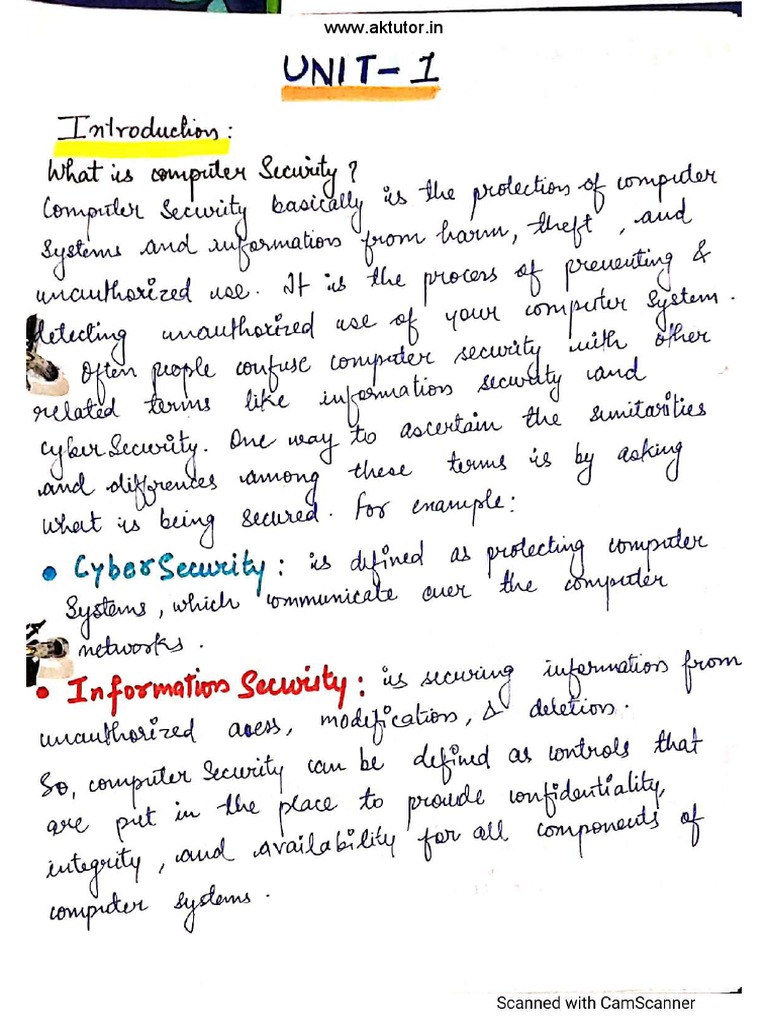 www.aktutor.in
UNIT-1
Introduction:
What is computer Security?
Computer Security basically is the protection of computer
Systems and information from harm, theft, and
unauthorized use. It is the process of preventing &
detecting unauthorized use of your computer system.
Often people confuse computer security with other
related terms like information security and
cyberSecurity. One way to ascertain the simitarities
and differences among these terms is by asking
what is being secured. For example:
• CyberSecurity: is defined as protecting computer
Systems, which communicate over the computer
networks.
• Information Security: is securing information from
unauthorized acess, modification, & deletion.
So, computer Security can be defined as controls that
are put in the place to provide confidentiality,
integrity, and availability for all components of
computer systems.
Scanned with CamScanner